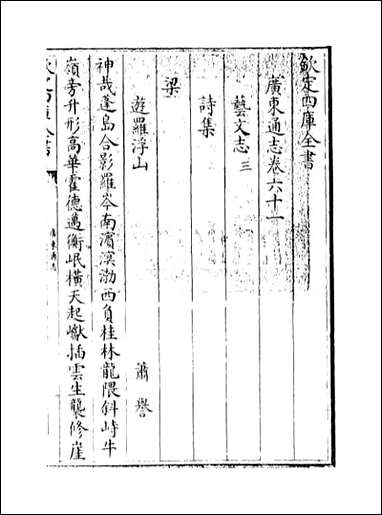 欽定四庫全書
廣東通志卷六十一
藝文志三
詩集
梁
遊羅浮山 蕭譽
神哉蓬島合影羅岑南濱溟渤西負桂林龍隈斜峙牛
嶺旁升形高華霍德邁衡岷橫天起巘插雲生襲修崖